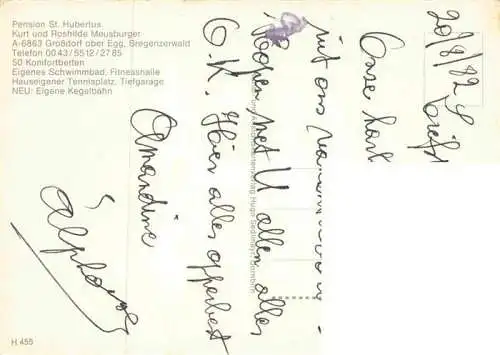 Pension St. Hubertus
Kurt und Roshilde Meusburger
A-6863 Großdorf ober Egg, Bregenzerwald
Telefon 00 43/55 12/27 85
50 Komfortbetten
Eigenes Schwimmbad, Fitnesshalle
Hauseigener Tennisplatz, Tiefgarage
NEU: Eigene Kegelbahn
20/8/82
Onze
uit ons
Hopen met U allen alles
O.K. Hier alles opperbest
Amandine
Alphonse
H 455